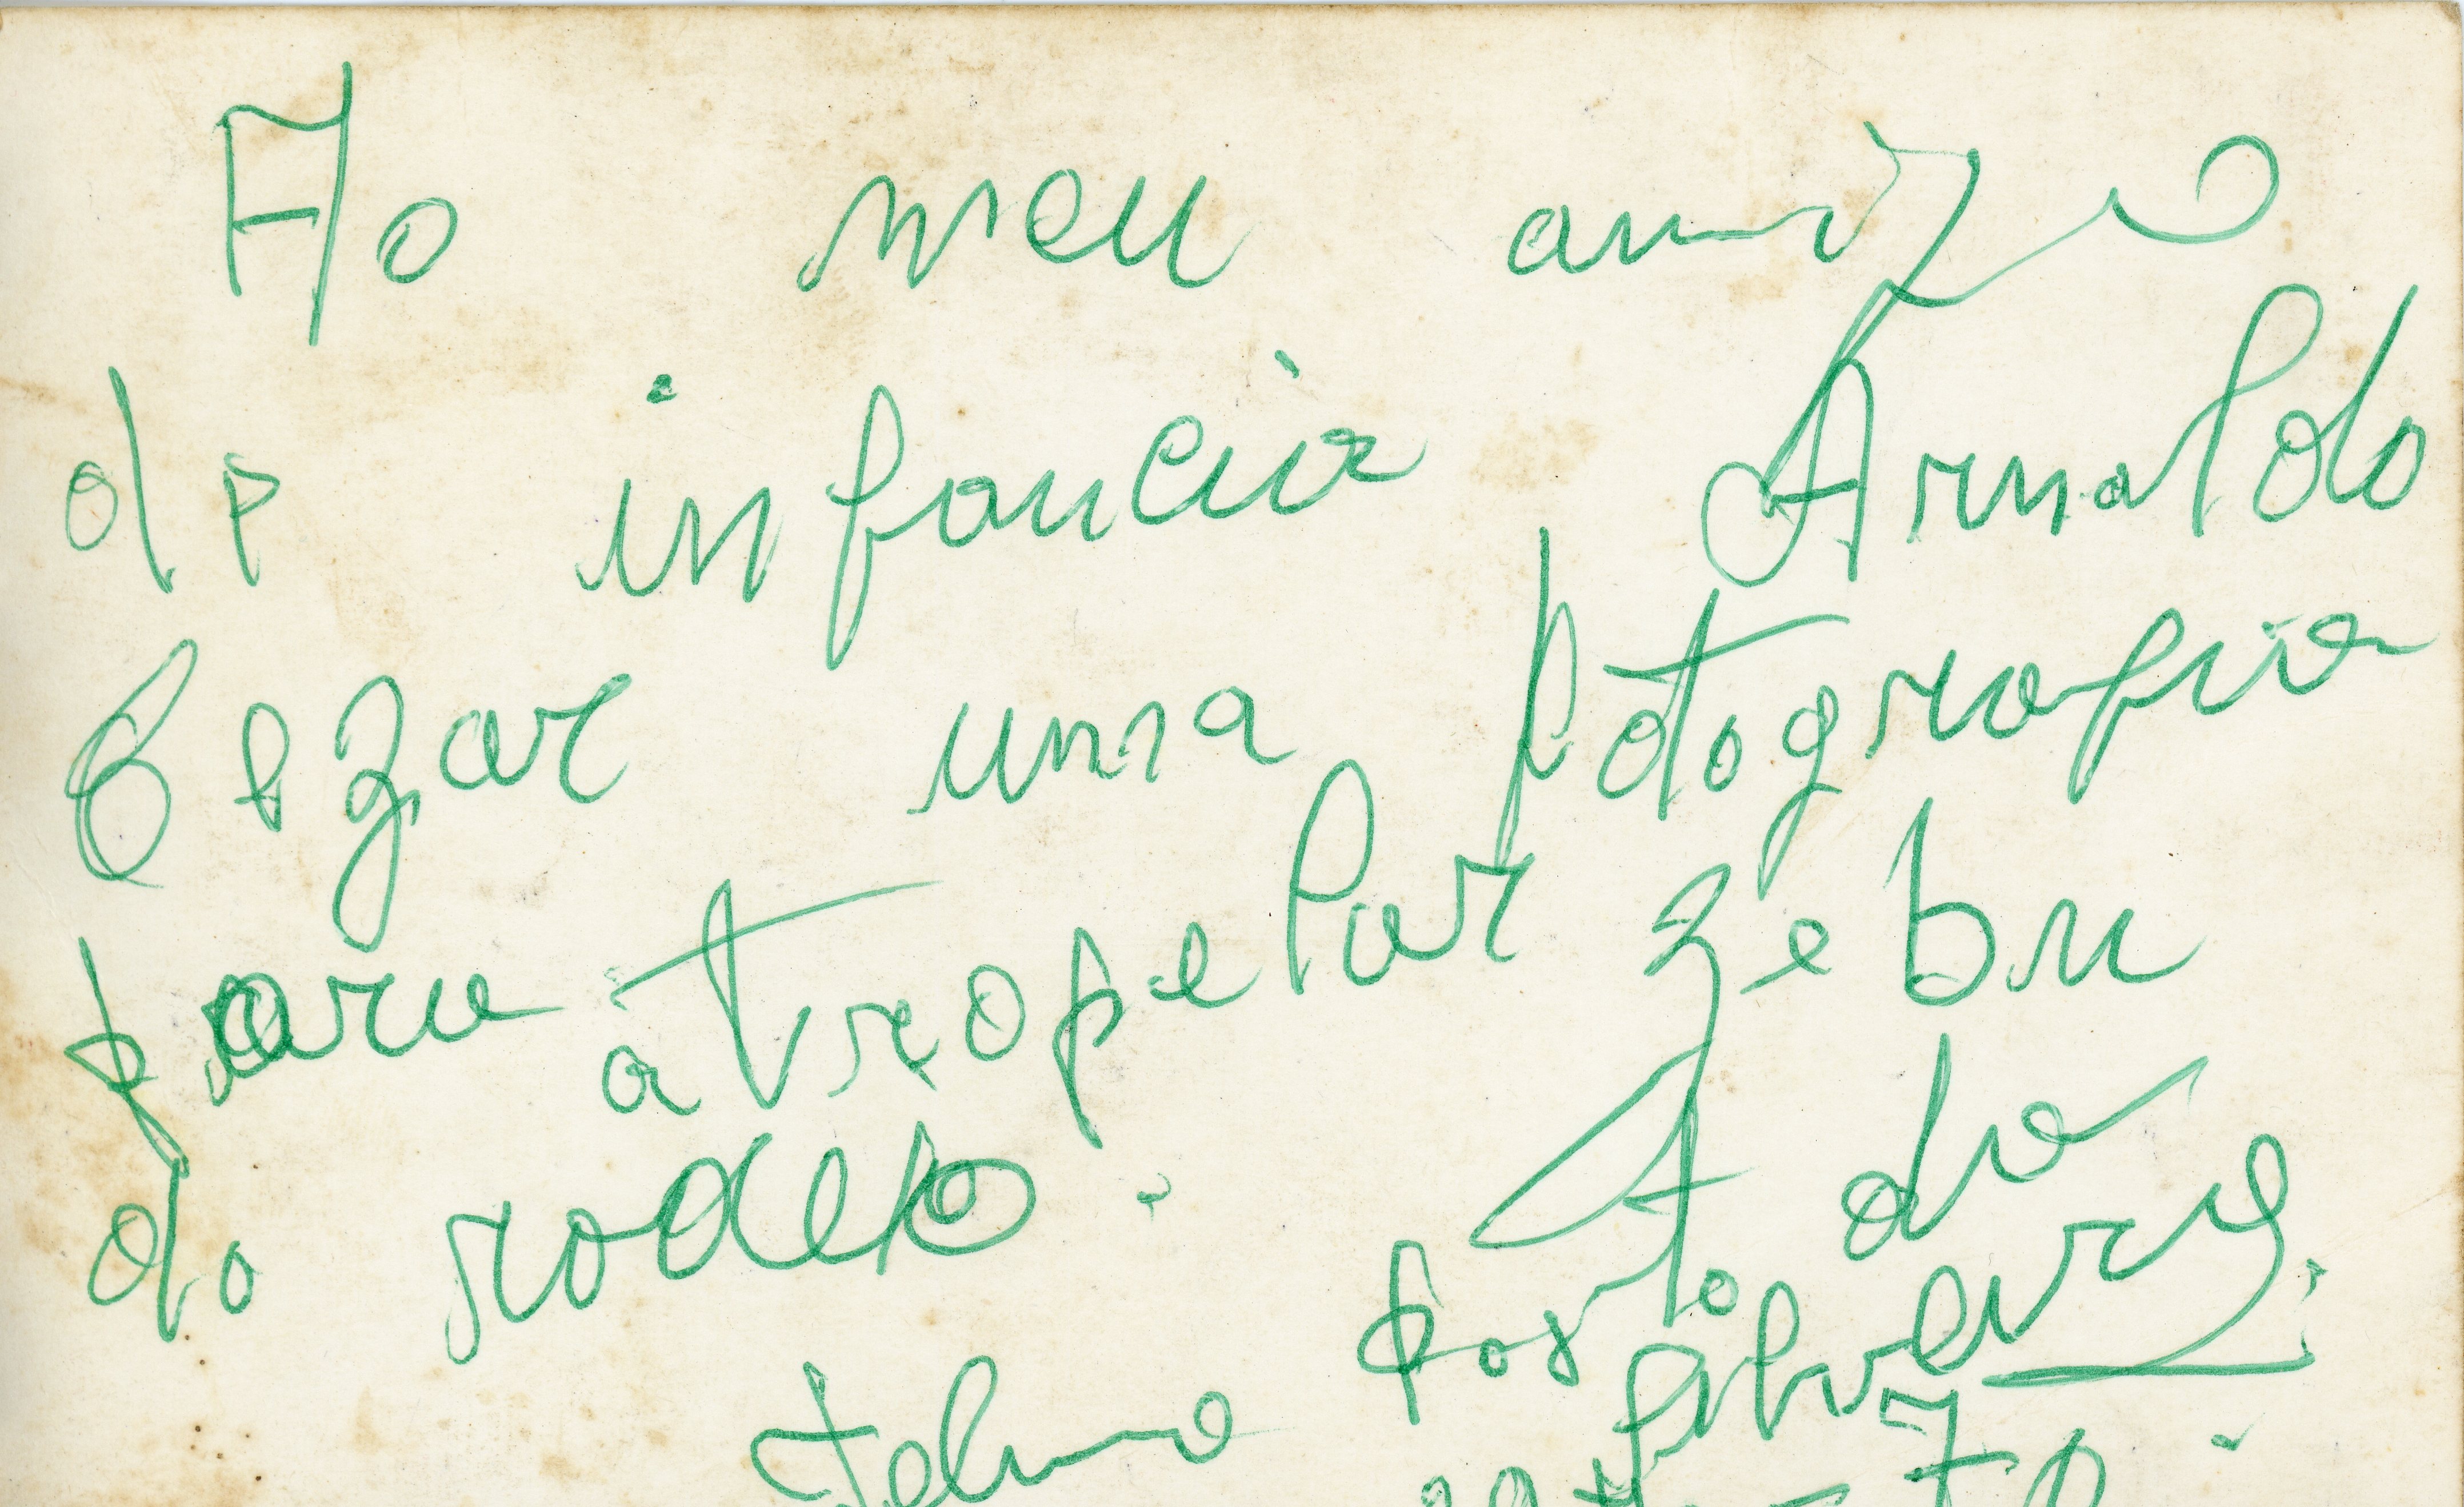 Ao meu amigo
de infancia Arnaldo
Bezar uma fotografia
para atropelar zebu
do rodeio.
Posto da
Telmo
70